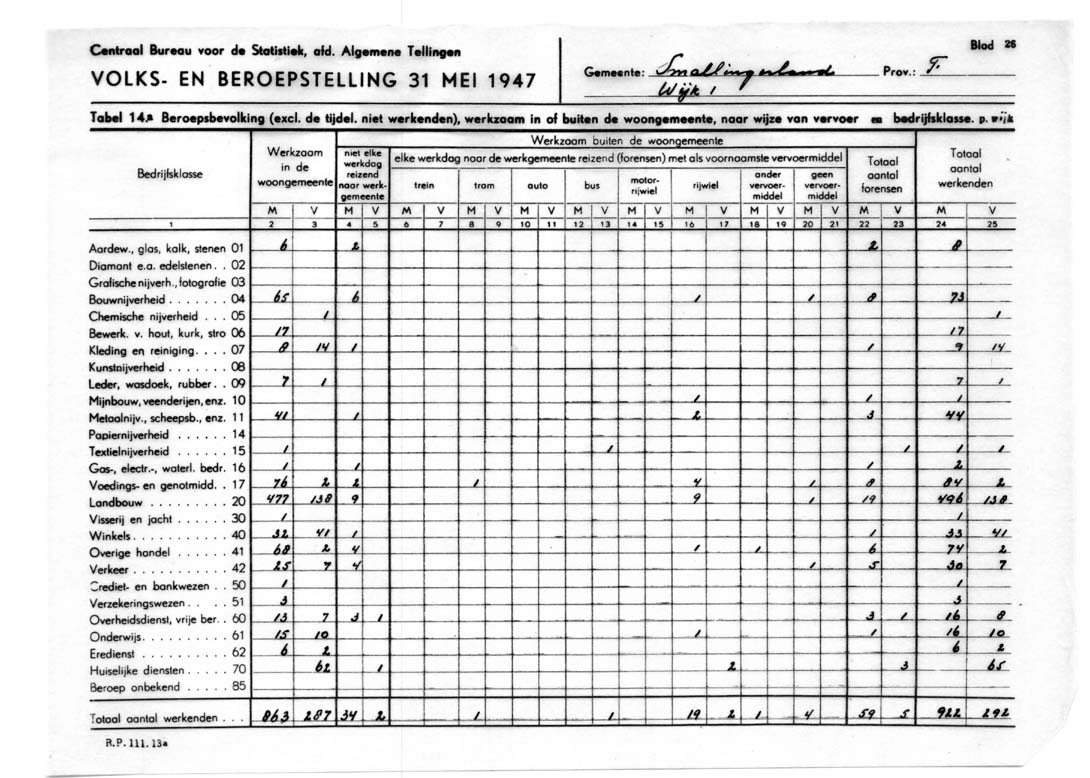 Centraal Bureau voor de Statistiek, afd. Algemene Tellingen
Blad 26
VOLKS- EN BEROEPSTELLING 31 MEI 1947
Gemeente: Smallingerland Prov.: F.
Wijk 1
Tabel 14.a Beroepsbevolking (excl. de tijdel. niet werkenden), werkzaam in of buiten de woongemeente, naar wijze van vervoer en bedrijfsklasse. p. wijk
Bedrijfsklasse
Werkzaam in de woongemeente
Werkzaam buiten de woongemeente
niet elke werkdag reizend naar werkgemeente
elke werkdag naar de werkgemeente reizend (forensen) met als voornaamste vervoermiddel
trein tram auto bus motor-rijwiel rijwiel ander vervoer-middel geen vervoer-middel
Totaal aantal forensen
Totaal aantal werkenden
M V M V M V M V M V M V M V M V M V M V M V M V
1 2 3 4 5 6 7 8 9 10 11 12 13 14 15 16 17 18 19 20 21 22 23 24 25
Aardew., glas, kalk, stenen 01 6 2 2 8
Diamant e.a. edelstenen . . 02
Grafische nijverh., fotografie 03
Bouwnijverheid . . . . . . . 04 65 6 1 1 8 73
Chemische nijverheid . . . 05 1 1
Bewerk. v. hout, kurk, stro 06 17 17
Kleding en reiniging. . . . 07 8 14 1 1 9 14
Kunstnijverheid . . . . . . . 08
Leder, wasdoek, rubber. . 09 7 1 7 1
Mijnbouw, veenderijen, enz. 10 1 1 1
Metaalnijv., scheepsb., enz. 11 41 1 2 3 44
Papiernijverheid . . . . . . 14
Textielnijverheid . . . . . . 15 1 1 1 1 1
Gas-, electr.-, waterl. bedr. 16 1 1 1 2
Voedings- en genotmidd. . 17 76 2 2 1 4 1 8 84 2
Landbouw . . . . . . . . . 20 477 138 9 9 1 19 496 138
Visserij en jacht . . . . . . 30 1 1
Winkels. . . . . . . . . . . 40 32 41 1 1 33 41
Overige handel . . . . . . . 41 68 2 4 1 1 6 74 2
Verkeer . . . . . . . . . . 42 25 7 4 1 5 30 7
Crediet- en bankwezen . . 50 1 1
Verzekeringswezen . . . . 51 3 3
Overheidsdienst, vrije ber. . 60 13 7 3 1 3 1 16 8
Onderwijs. . . . . . . . . . 61 15 10 1 1 16 10
Eredienst . . . . . . . . . . 62 6 2 6 2
Huiselijke diensten . . . . . 70 62 1 2 3 65
Beroep onbekend . . . . . 85
Totaal aantal werkenden . . . 863 287 34 2 1 1 19 2 1 4 59 5 922 292
R.P. 111. 13a